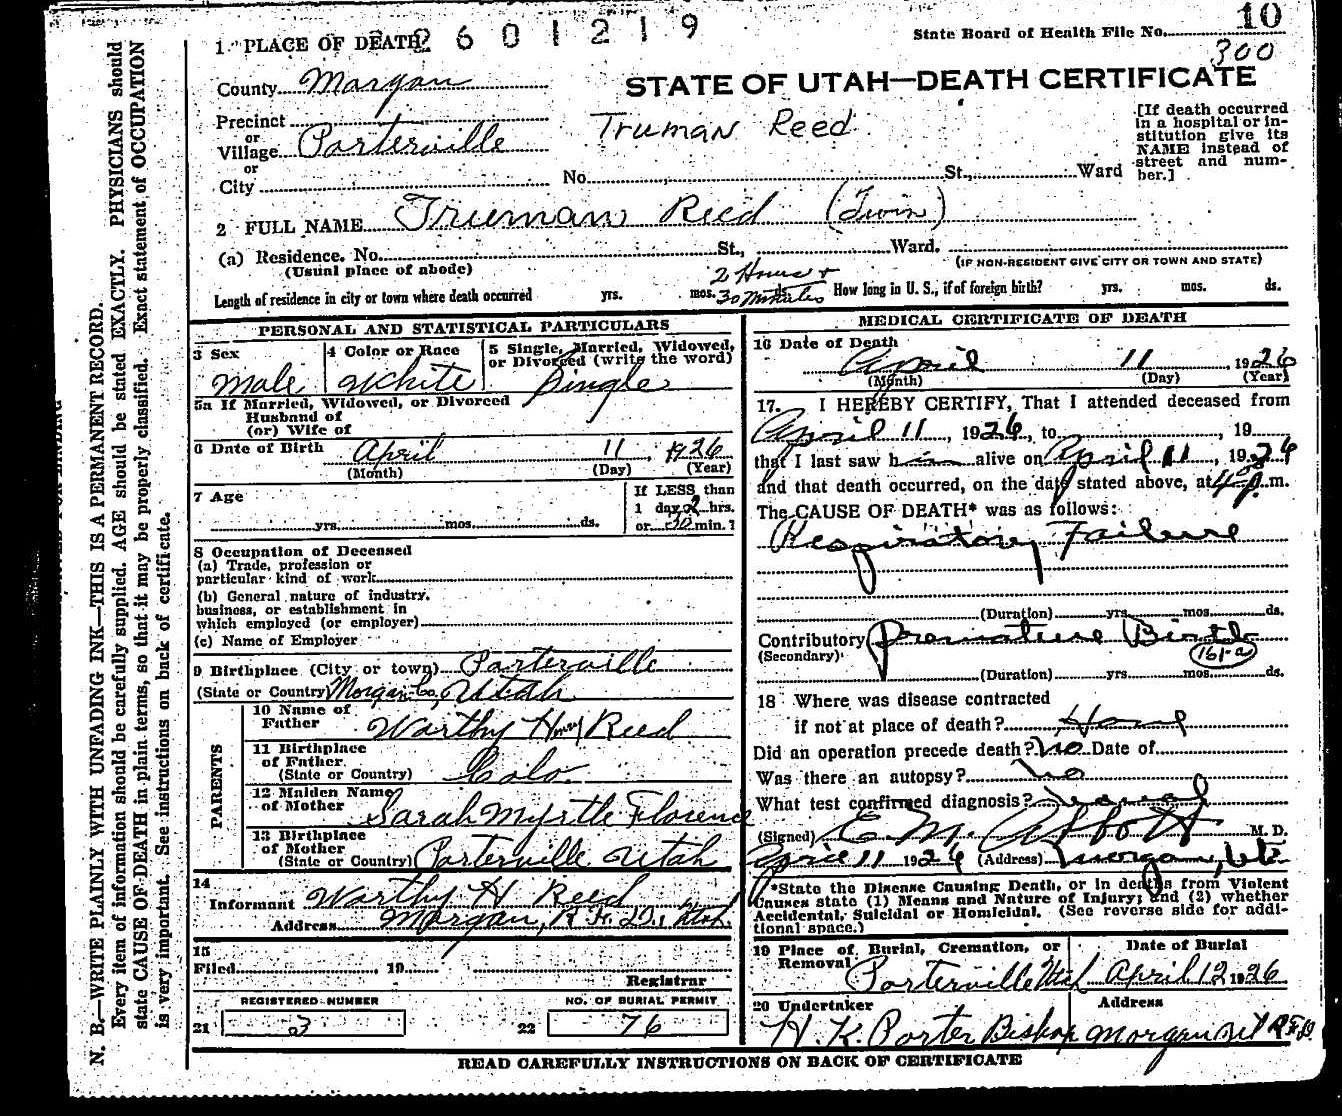 10
State Board of Health File No.
2601219
300
1. PLACE OF DEATH
County Morgan
STATE OF UTAH—DEATH CERTIFICATE
Precinct
or
Village Porterville
Truman Reed
[If death occurred in a hospital or institution give its NAME instead of street and number.]
or
City No. St., Ward
2 FULL NAME Truman Reed (Twin)
(a) Residence. No. St., Ward.
(Usual place of abode)
(IF NON-RESIDENT GIVE CITY OR TOWN AND STATE)
2 Hours +
Length of residence in city or town where death occurred yrs. mos. 30 Minutes ds. How long in U. S., if of foreign birth? yrs. mos. ds.
PERSONAL AND STATISTICAL PARTICULARS
3 Sex
Male
4 Color or Race
White
5 Single, Married, Widowed,
or Divorced (write the word)
Single
5a If Married, Widowed, or Divorced
Husband of
(or) Wife of
6 Date of Birth April 11, 1926
(Month) (Day) (Year)
7 Age
yrs. mos. ds.
If LESS than
1 day 2 hrs.
or 30 min.?
8 Occupation of Deceased
(a) Trade, profession or
particular kind of work
(b) General nature of industry,
business, or establishment in
which employed (or employer)
(c) Name of Employer
9 Birthplace (City or town) Porterville
(State or Country) Morgan Co, Utah
PARENTS
10 Name of
Father Warthy Reed
11 Birthplace
of Father
(State or Country) Colo.
12 Maiden Name
of Mother Sarah Myrtle Florence
13 Birthplace
of Mother
(State or Country) Porterville Utah
14
Informant Warthy H Reed
Address Morgan, R.F.D., Utah
15
Filed , 19
Registrar
REGISTERED NUMBER
21 3
NO. OF BURIAL PERMIT
22 76
MEDICAL CERTIFICATE OF DEATH
16 Date of Death
April 11, 1926
(Month) (Day) (Year)
17. I HEREBY CERTIFY, That I attended deceased from
April 11, 1926, to , 19
that I last saw him alive on April 11, 1926
and that death occurred, on the date stated above, at 4 p.m.
The CAUSE OF DEATH* was as follows:
Respiratory Failure
(Duration) yrs. mos. ds.
Contributory Premature Birth
(Secondary) 161-a
(Duration) yrs. mos. ds.
18 Where was disease contracted
if not at place of death? Home
Did an operation precede death? No Date of
Was there an autopsy? No
What test confirmed diagnosis?
(Signed) E. M. Abbott M. D.
April 11 1926 (Address) Morgan, Ut.
*State the Disease Causing Death, or in deaths from Violent
Causes state (1) Means and Nature of Injury; and (2) whether
Accidental, Suicidal or Homicidal. (See reverse side for addi-
tional space.)
19 Place of Burial, Cremation, or
Removal Porterville Utah
Date of Burial
April 12 1926
20 Undertaker
H. K. Porter Bishop
Address
Morgan Ut R.F.D.
READ CAREFULLY INSTRUCTIONS ON BACK OF CERTIFICATE
N. B.—WRITE PLAINLY WITH UNFADING INK—THIS IS A PERMANENT RECORD.
Every item of information should be carefully supplied. AGE should be stated EXACTLY. PHYSICIANS should
state CAUSE OF DEATH in plain terms, so that it may be properly classified. Exact statement of OCCUPATION
is very important. See instructions on back of certificate.